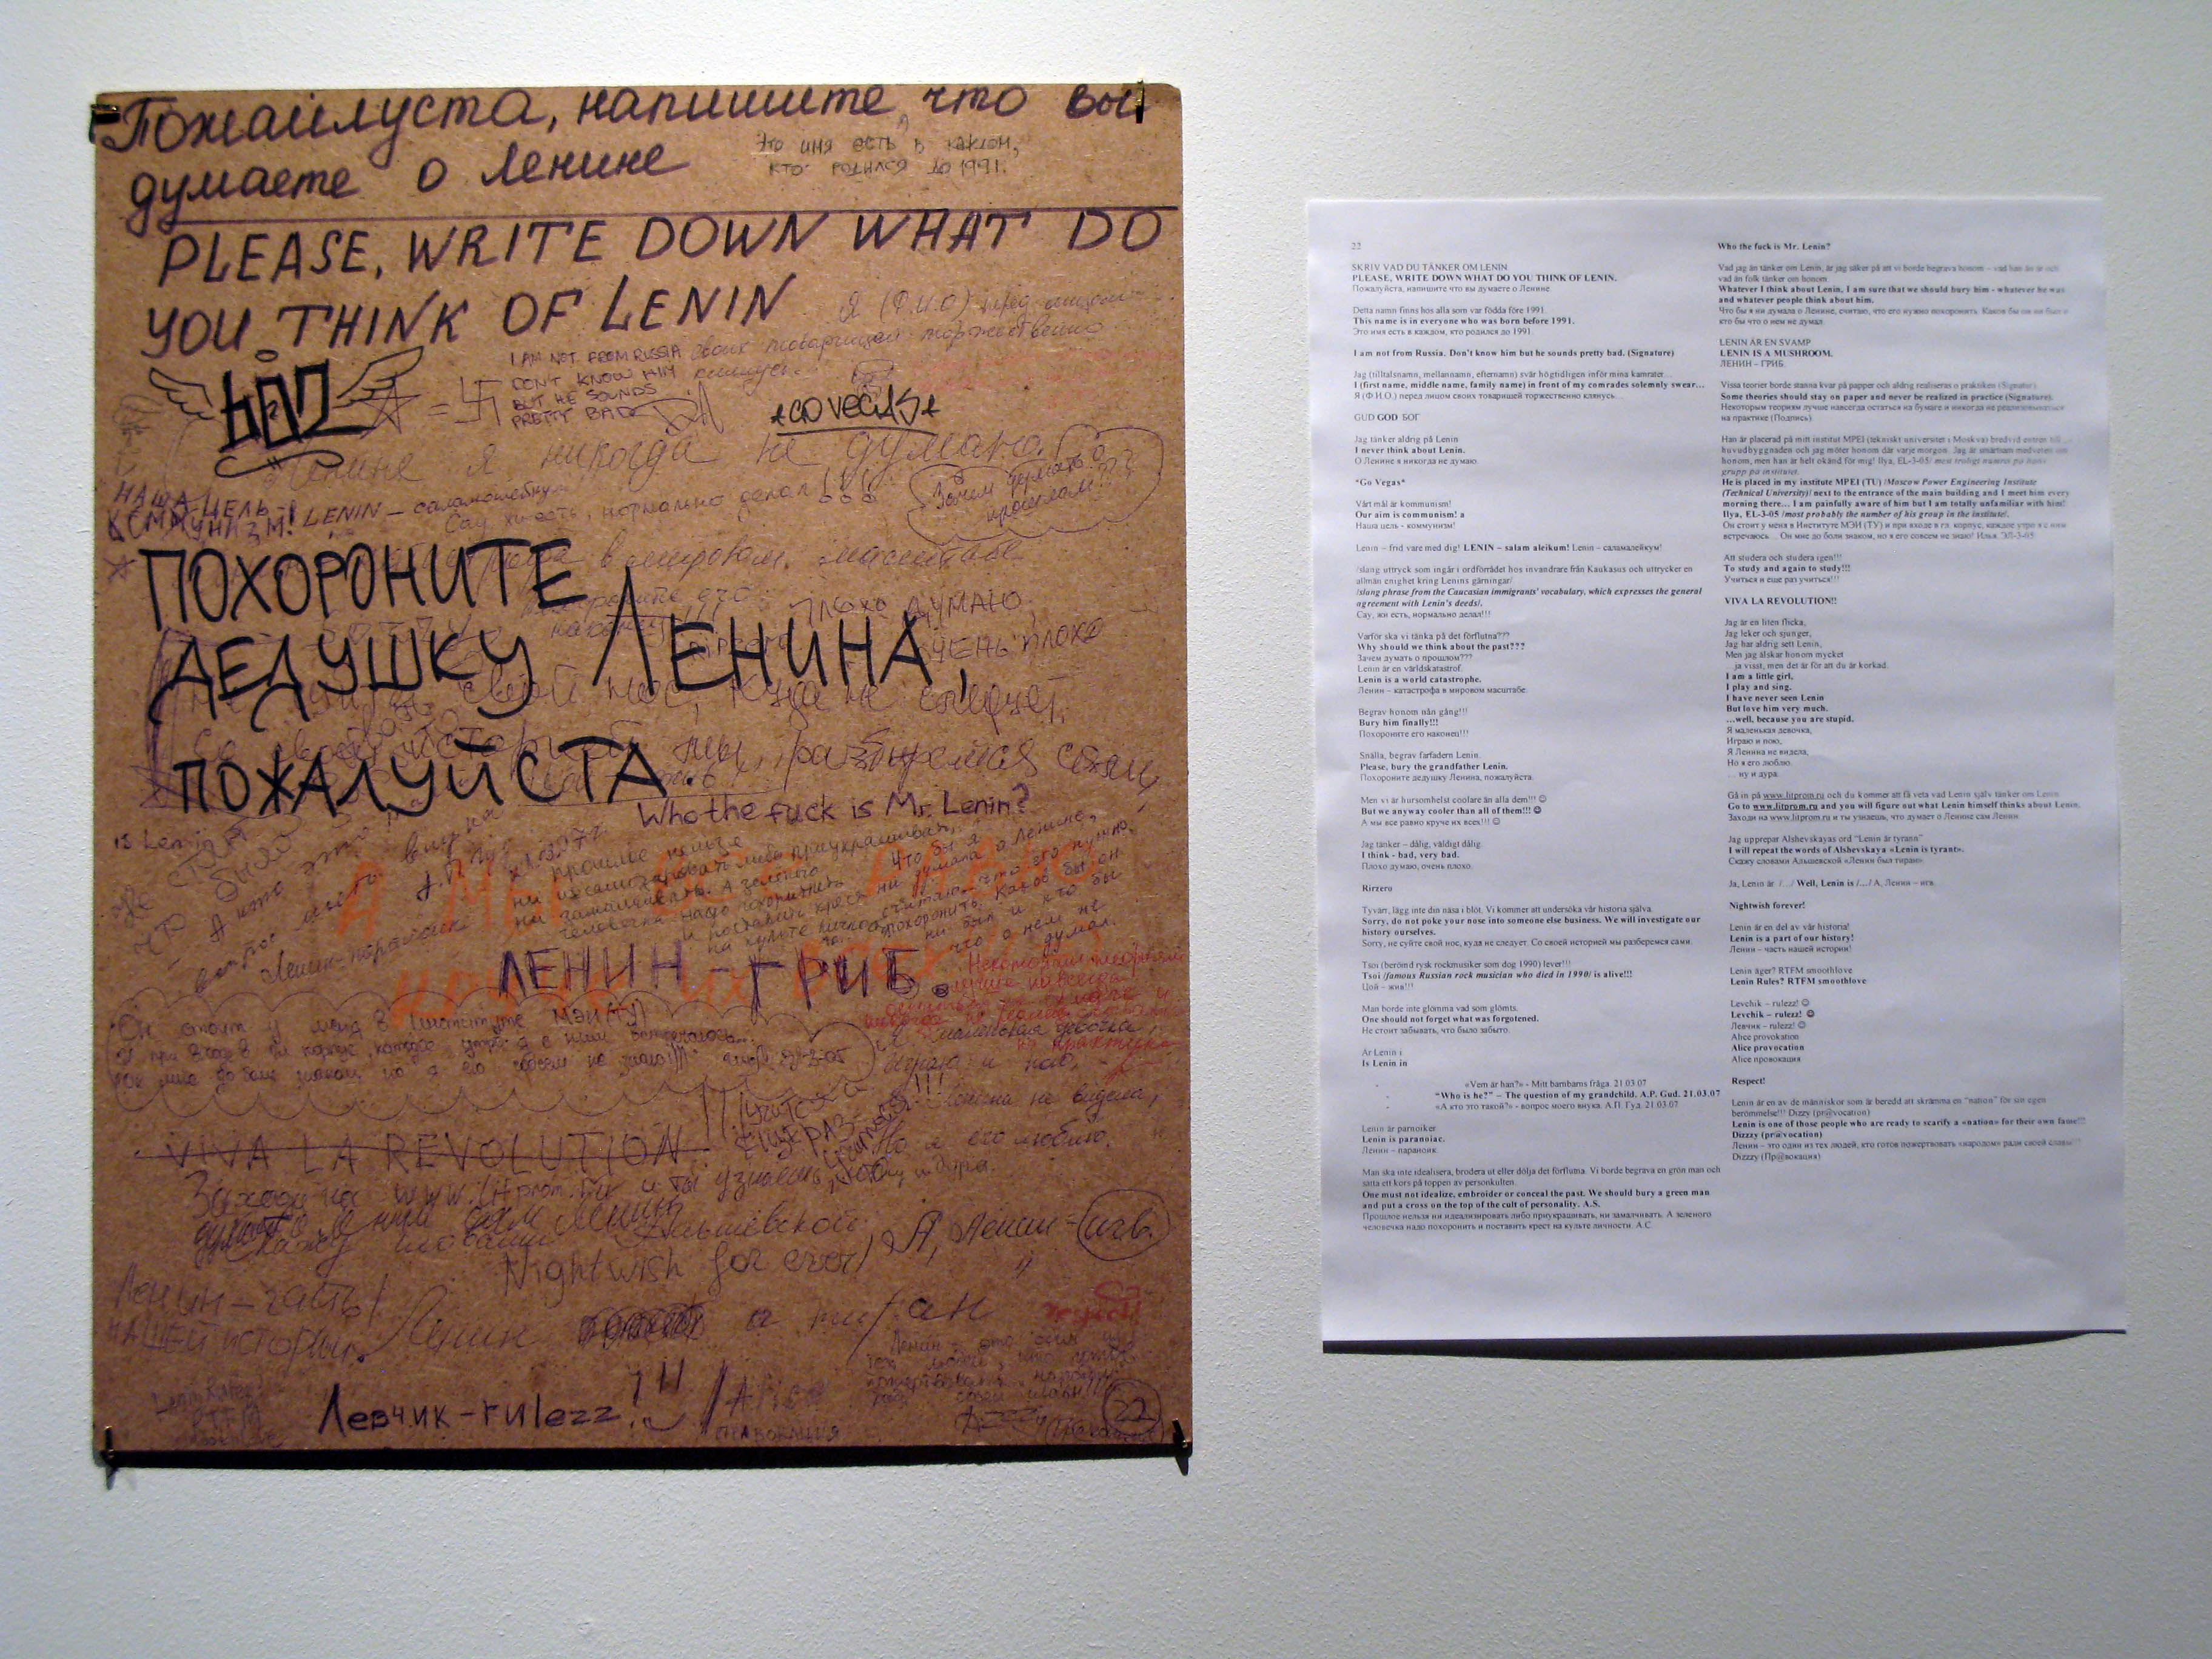 Пожайлуста, напишите, что вы
думаете о Ленине
Это имя есть в каждом,
кто родился до 1991.
PLEASE, WRITE DOWN WHAT DO
YOU THINK OF LENIN
Я (Ф.И.О) перед лицом
своих товарищей торжественно
клянусь...
I AM NOT FROM RUSSIA
DON'T KNOW HIM
BUT HE SOUNDS
PRETTY BAD
GO VEGAS
О Ленине я никогда не думала.
Зачем думать о
прошлом???
НАША ЦЕЛЬ -
КОММУНИЗМ!
LENIN - саламалейкум
Сау, жи есть, нормально делал!!!
в мировом масштабе
ПОХОРОНИТЕ
ДЕДУШКУ ЛЕНИНА,
ПОЖАЛУЙСТА.
ПЛОХО ДУМАЮ,
ОЧЕНЬ ПЛОХО
свой нос, куда не следует.
Со своей историей мы разберемся сами
Who the fuck is Mr. Lenin?
is Lenin
А кто это
вопрос моего внука
А.П. Гуд
Ленин-параноик
прошлое нельзя
ни идеализировать либо приукрашивать,
ни замалчивать. А зеленого
человечка надо похоронить
и поставить крест
на культе личности
Что бы я
ни думала о Ленине,
считаю, что его нужно
похоронить. Каков бы он
ни был и кто бы
что о нем не
думал.
ЛЕНИН - ГРИБ.
Некоторым теориям
лучше навсегда
остаться на бумаге и
на практике
Он стоит у меня в Институте МЭИ(ТУ)
и при входе в гл. корпус, каждое утро я с ним встречаюсь...
Он мне до боли знаком, но я его совсем не знаю!!!
Я маленькая девочка,
Играю и пою,
Ленина не видела,
Но я его люблю.
ну и дура.
Учиться и
еще раз
учиться!!!
VIVA LA REVOLUTION
Заходи на www.litprom.ru и ты узнаешь, что
думает о Ленине сам Ленин
Скажу словами Альшевской
А, Ленин - игв.
Nightwish for ever!
Ленин - часть
НАШЕЙ истории.
Ленин а тиран
Ленин - это один из
тех людей, кто готов
пожертвовать народом
ради своей славы
Левчик - rulezz!
Alice
ПРОВОКАЦИЯ
22
22
SKRIV VAD DU TÄNKER OM LENIN
PLEASE, WRITE DOWN WHAT DO YOU THINK OF LENIN.
Пожалуйста, напишите что вы думаете о Ленине
Detta namn finns hos alla som var födda före 1991.
This name is in everyone who was born before 1991.
Это имя есть в каждом, кто родился до 1991.
I am not from Russia. Don't know him but he sounds pretty bad. (Signature)
Jag (tilltalsnamn, mellannamn, efternamn) svär högtidligen inför mina kamrater…
I (first name, middle name, family name) in front of my comrades solemnly swear…
Я (Ф.И.О.) перед лицом своих товарищей торжественно клянусь…
GUD GOD БОГ
Jag tänker aldrig på Lenin
I never think about Lenin.
О Ленине я никогда не думаю.
*Go Vegas*
Vårt mål är kommunism!
Our aim is communism! a
Наша цель - коммунизм!
Lenin – frid vare med dig! LENIN – salam aleikum! Lenin – саламалейкум!
/slang uttryck som ingår i ordförrådet hos invandrare från Kaukasus och uttrycker en
allmän enighet kring Lenins gärningar/
/slang phrase from the Caucasian immigrants' vocabulary, which expresses the general
agreement with Lenin's deeds/.
Сау, жи есть, нормально делал!!!
Varför ska vi tänka på det förflutna???
Why should we think about the past???
Зачем думать о прошлом???
Lenin är en världskatastrof.
Lenin is a world catastrophe.
Ленин – катастрофа в мировом масштабе.
Begrav honom nån gång!!!
Bury him finally!!!
Похороните его наконец!!!
Snälla, begrav farfadern Lenin.
Please, bury the grandfather Lenin.
Похороните дедушку Ленина, пожалуйста.
Men vi är hursomhelst coolare än alla dem!!! ☺
But we anyway cooler than all of them!!! ☺
А мы все равно круче их всех!!! ☺
Jag tänker – dålig, väldigt dålig.
I think - bad, very bad.
Плохо думаю, очень плохо.
Rirzero
Tyvärr, lägg inte din näsa i blöt. Vi kommer att undersöka vår historia själva.
Sorry, do not poke your nose into someone else business. We will investigate our
history ourselves.
Sorry, не суйте свой нос, куда не следует. Со своей историей мы разберемся сами.
Tsoi (berömd rysk rockmusiker som dog 1990) lever!!!
Tsoi /famous Russian rock musician who died in 1990/ is alive!!!
Цой – жив!!!
Man borde inte glömma vad som glömts.
One should not forget what was forgotened.
Не стоит забывать, что было забыто.
Är Lenin i
Is Lenin in
- «Vem är han?» - Mitt barnbarns fråga. 21.03.07
- "Who is he?" – The question of my grandchild. A.P. Gud. 21.03.07
- «А кто это такой?» - вопрос моего внука. А.П. Гуд. 21.03.07
Lenin är parnoiker
Lenin is paranoiac.
Ленин – параноик.
Man ska inte idealisera, brodera ut eller dölja det förflutna. Vi borde begrava en grön man och
sätta ett kors på toppen av personkulten.
One must not idealize, embroider or conceal the past. We should bury a green man
and put a cross on the top of the cult of personality. A.S.
Прошлое нельзя ни идеализировать либо приукрашивать, ни замалчивать. А зеленого
человечка надо похоронить и поставить крест на культе личности. А.С.
Who the fuck is Mr. Lenin?
Vad jag än tänker om Lenin, är jag säker på att vi borde begrava honom – vad han än är och
vad än folk tänker om honom
Whatever I think about Lenin, I am sure that we should bury him - whatever he was
and whatever people think about him.
Что бы я ни думала о Ленине, считаю, что его нужно похоронить. Каков бы он ни был и
кто бы что о нем не думал.
LENIN ÄR EN SVAMP
LENIN IS A MUSHROOM.
ЛЕНИН – ГРИБ.
Vissa teorier borde stanna kvar på papper och aldrig realiseras o praktiken (Signatur)
Some theories should stay on paper and never be realized in practice (Signature).
Некоторым теориям лучше навсегда остаться на бумаге и никогда не реализовываться
на практике (Подпись)
Han är placerad på mitt institut MPEI (tekniskt universitet i Moskva) bredvid entren till
huvudbyggnaden och jag möter honom där varje morgon. Jag är smärtsam medveten om
honom, men han är helt okänd för mig! Ilya, EL-3-05/ mest troligt numret på hans
grupp på institutet.
He is placed in my institute MPEI (TU) /Moscow Power Engineering Institute
(Technical University)/ next to the entrance of the main building and I meet him every
morning there… I am painfully aware of him but I am totally unfamiliar with him!
Ilya, EL-3-05 /most probably the number of his group in the institute/.
Он стоит у меня в Институте МЭИ (ТУ) и при входе в гл. корпус, каждое утро я с ним
встречаюсь… Он мне до боли знаком, но я его совсем не знаю! Илья. ЭЛ-3-05
Att studera och studera igen!!!
To study and again to study!!!
Учиться и еще раз учиться!!!
VIVA LA REVOLUTION!!
Jag är en liten flicka,
Jag leker och sjunger,
Jag har aldrig sett Lenin,
Men jag älskar honom mycket
…ja visst, men det är för att du är korkad.
I am a little girl,
I play and sing.
I have never seen Lenin
But love him very much.
…well, because you are stupid.
Я маленькая девочка,
Играю и пою,
Я Ленина не видела,
Но я его люблю.
… ну и дура.
Gå in på www.litprom.ru och du kommer att få veta vad Lenin själv tänker om Lenin
Go to www.litprom.ru and you will figure out what Lenin himself thinks about Lenin.
Заходи на www.litprom.ru и ты узнаешь, что думает о Ленине сам Ленин
Jag upprepar Alshevskayas ord "Lenin är tyrann"
I will repeat the words of Alshevskaya «Lenin is tyrant».
Скажу словами Альшевской «Ленин был тиран»
Ja, Lenin är /…/ Well, Lenin is /…/ А, Ленин – игв.
Nightwish forever!
Lenin är en del av vår historia!
Lenin is a part of our history!
Ленин – часть нашей истории!
Lenin äger? RTFM smoothlove
Lenin Rules? RTFM smoothlove
Levchik – rulezz! ☺
Levchik – rulezz! ☺
Левчик – rulezz! ☺
Alice provokation
Alice provocation
Alice провокация
Respect!
Lenin är en av de människor som är beredd att skrämma en "nation" för sin egen
berömmelse!!! Dizzy (pr@vocation)
Lenin is one of those people who are ready to scarify a «nation» for their own fame!!!
Dizzzy (pr@vocation)
Ленин – это один из тех людей, кто готов пожертвовать «народом» ради своей славы!!!
Dizzzy (Пр@вокация)